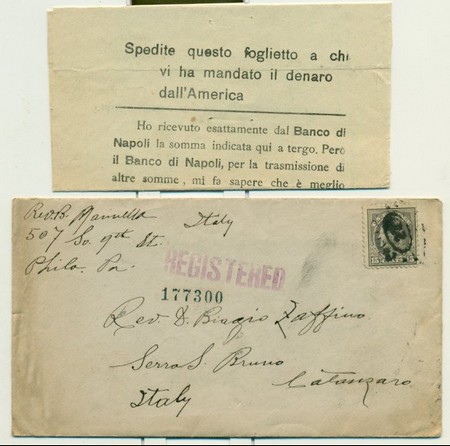 Spedite questo foglietto a chi
vi ha mandato il denaro
dall'America
Ho ricevuto esattamente dal Banco di
Napoli la somma indicata qui a tergo. Però
il Banco di Napoli, per la trasmissione di
altre somme, mi fa sapere che è meglio
Rev. B. Mannella
507 So. 9th St.
Phila. Pa.
Italy
15
REGISTERED
177300
Rev. D. Biagio Zaffino
Serra S. Bruno
Catanzaro
Italy